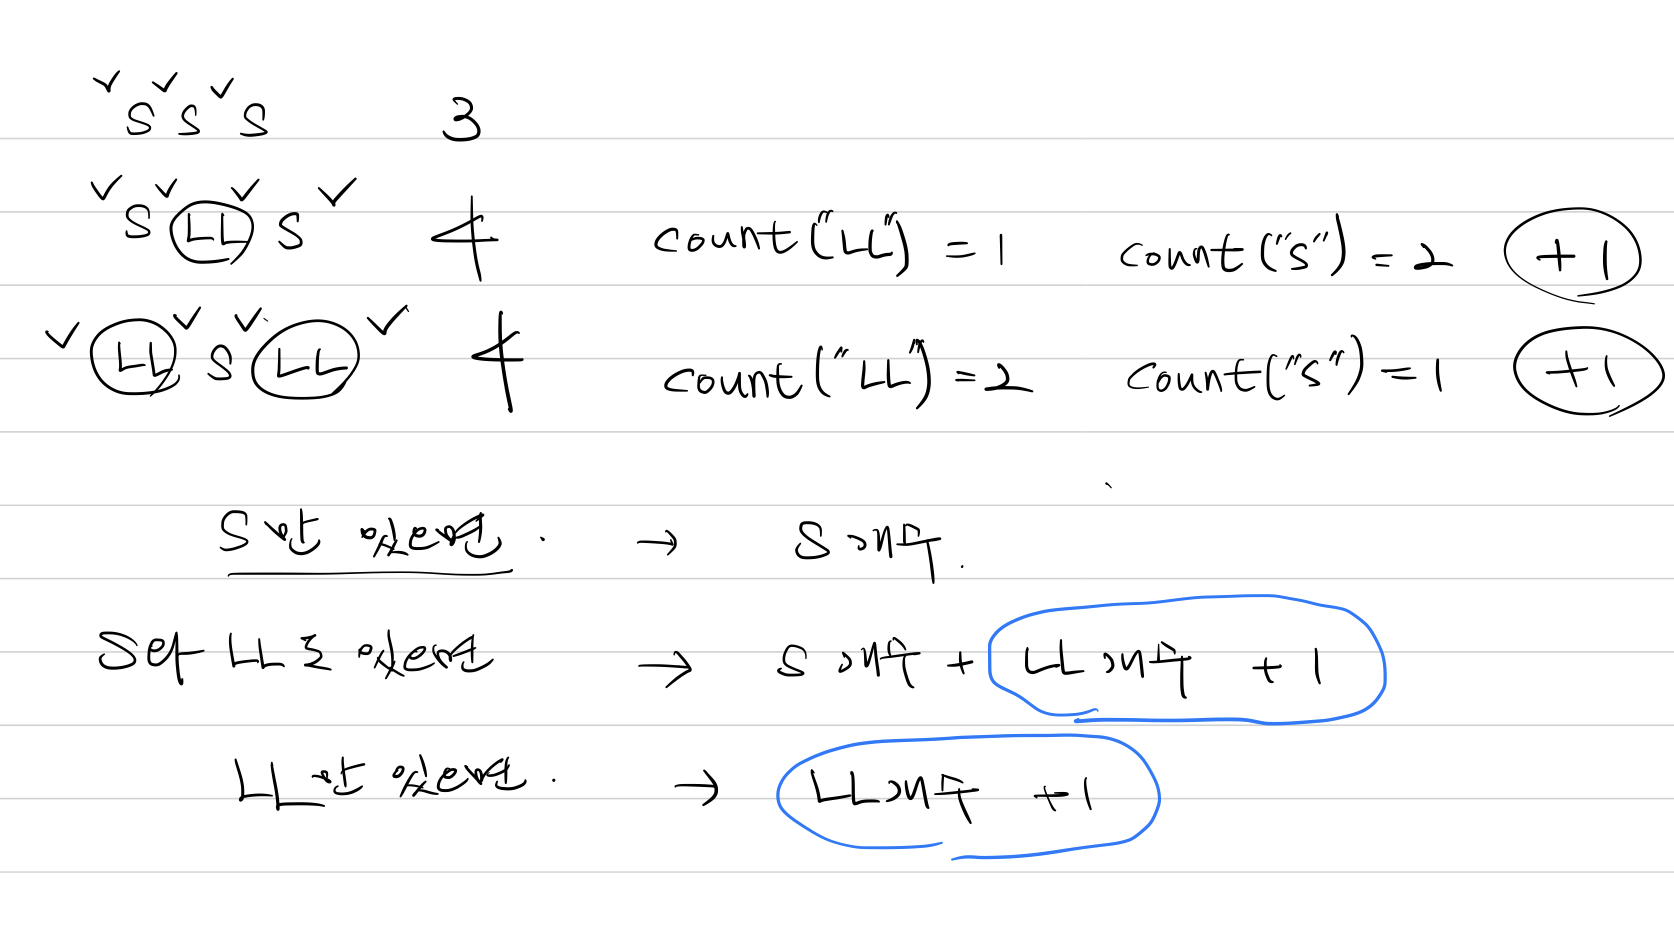 ✓S✓S✓S 3
✓S✓LL✓S✓ 4 count("LL") = 1 count("S") = 2 +1
✓LL✓S✓LL✓ 4 count("LL") = 2 count("S") = 1 +1
S만 있으면. → S개수.
S랑 LL로 있으면 → S개수 + LL개수 + 1
LL만 있으면. → LL개수 +1